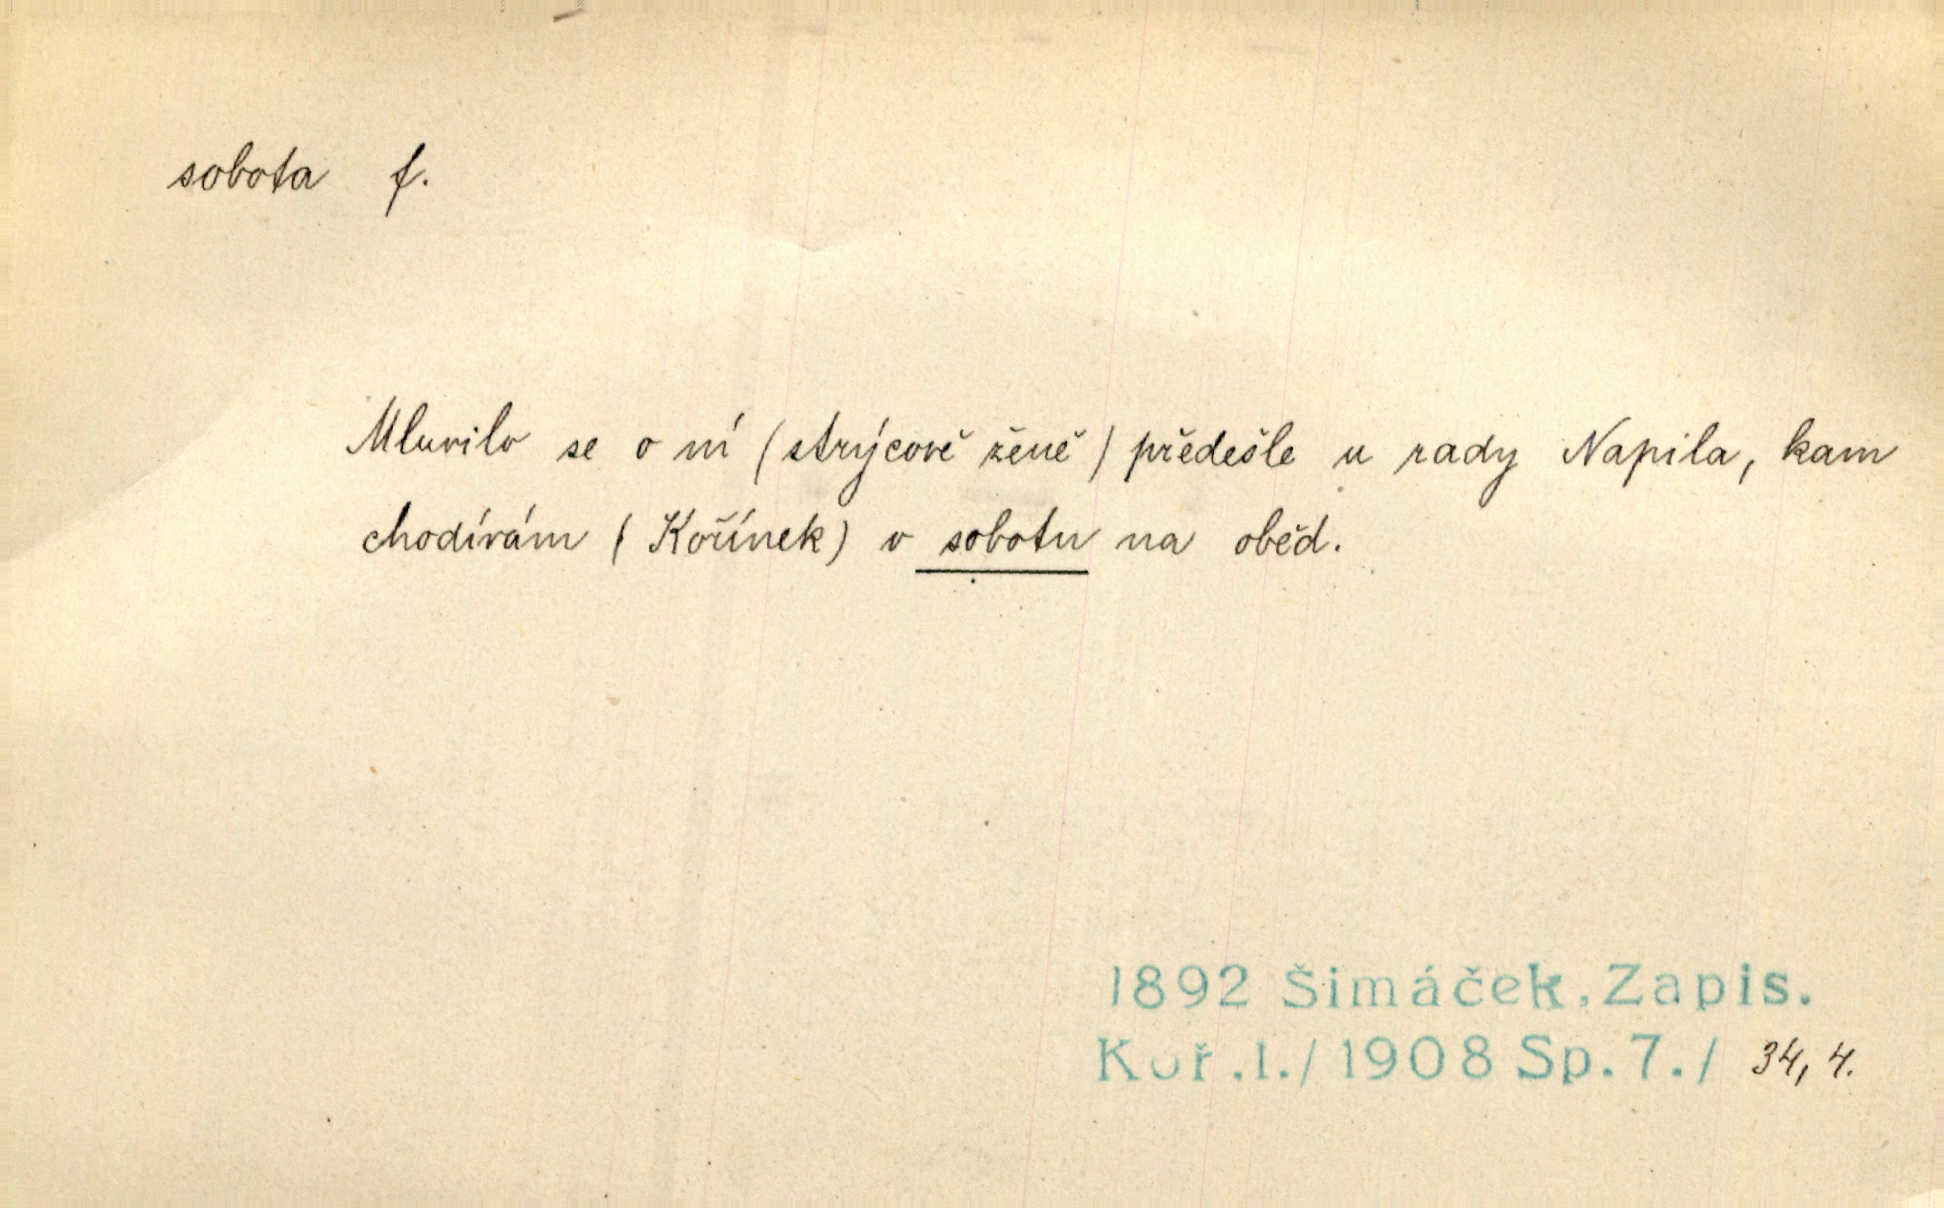 sobota f.
Mluvilo se o ní (strýcově ženě) předešle u rady Napila, kam
chodívám (Kořínek) v sobotu na oběd.
1892 Šimáček, Zapis.
Koř.I./1908 Sp.7./ 34, 4.